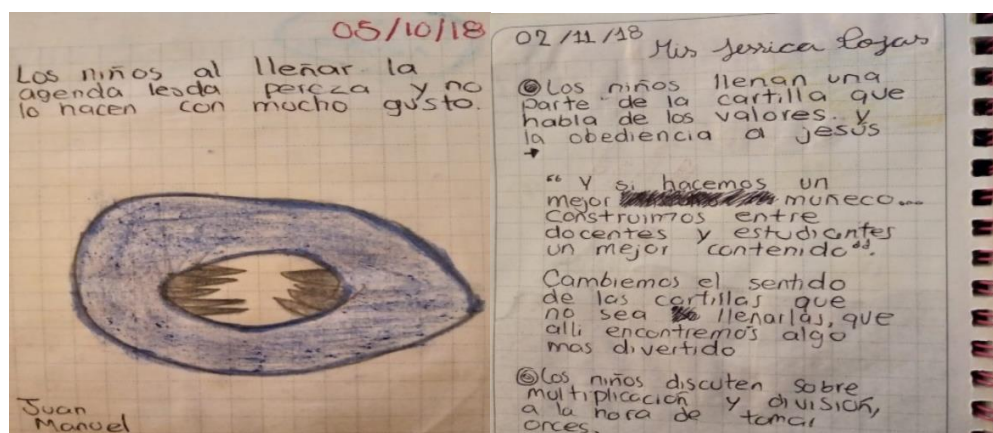 05/10/18
Los niños al lleñar la
agenda lesda pereza y no
lo hacen con mucho gusto.
Juan
Manuel
02/11/18
Mis Jessica Rojas
Los niños llenan una
parte de la cartilla que
habla de los valores. y
la obediencia a jesús
“ Y si hacemos un
mejor muñeco...
construimos entre
docentes y estudiantes
un mejor contenido".
Cambiemos el sentido
de las cartillas que
no sea llenarlas, que
alli encontremos algo
mas divertido
Los niños discuten sobre
multiplicación y división,
a la hora de tomar
onces.